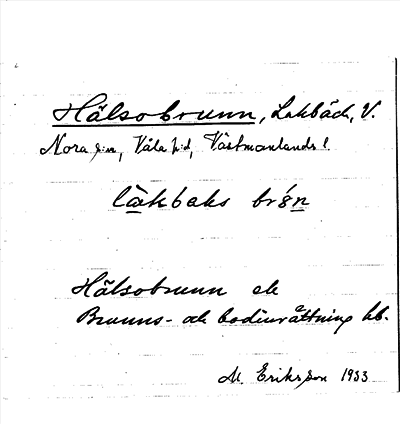 Hälsobrunn, Lakbäck, V.
Nora s:n, Våla h:d, Västmanlands l.
làkbaks brón
Hälsobrunn ek
Brunns- ek badinrättning hb.
M. Eriksson 1933